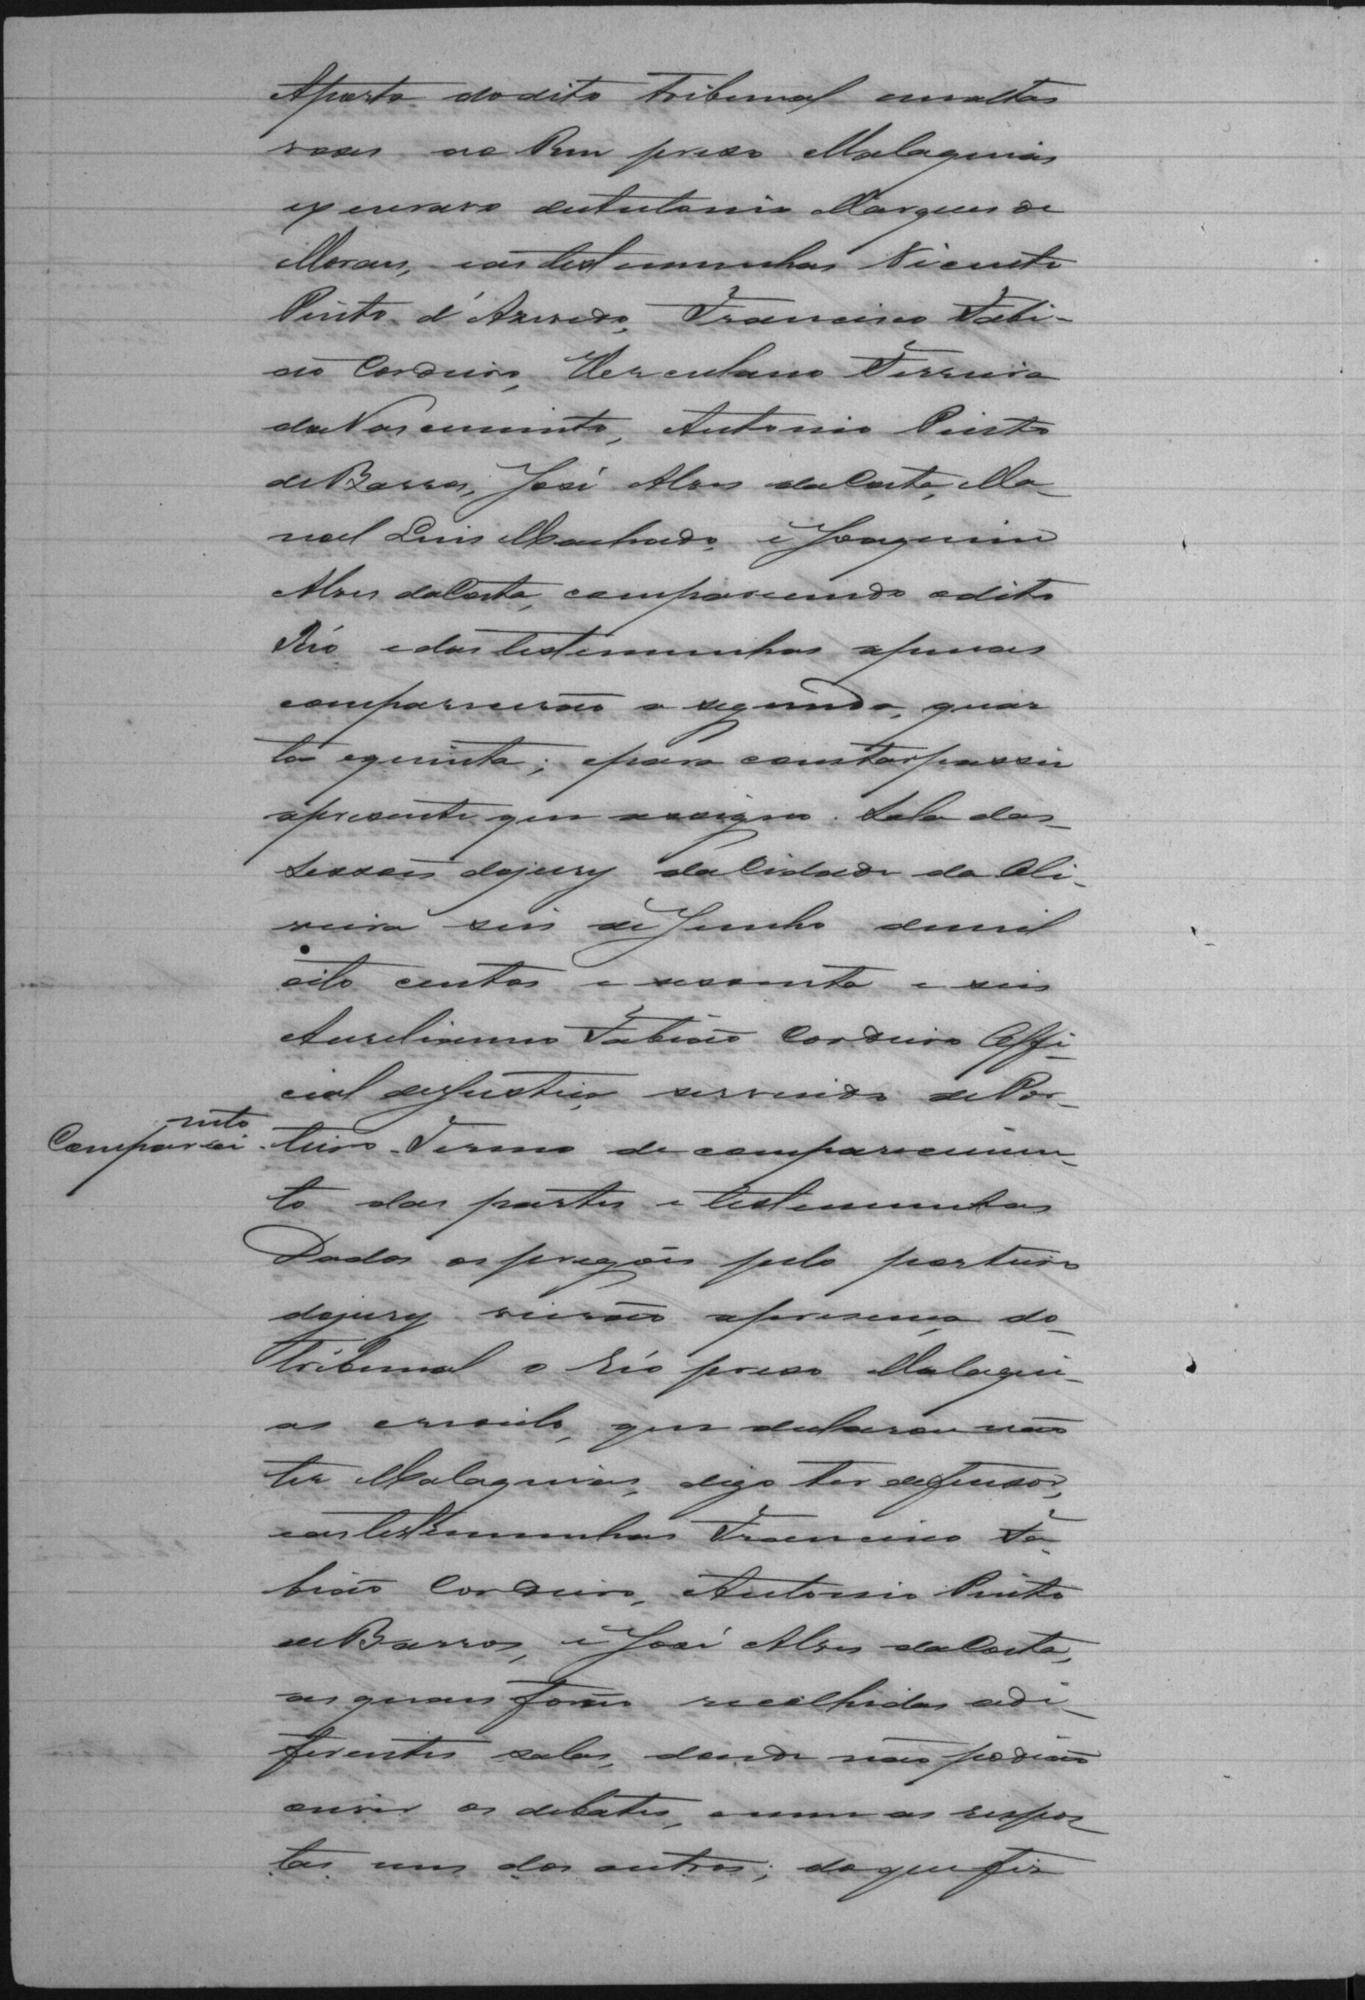 Aporta dodito tribunal em altas
voses ao Reu preso Malaquias
escravo de Antonio Marques de
Moraes, eas testemunhas Vicente
Pinto d'Azevedo, Francisco Fabi-
ão Cordeiro, Herculano Ferreira
do Nascimento, Antonio Pinto
de Barros, José Alves da Costa, Ma-
noel Luis Machado, e Joaquim
Alves da Costa, comparecendo o dito
Réo e das testemunhas apenas
comparecerão a segunda, quar
ta e quinta; e para constar passei
apresente que assigno. Sala das
Sessões do jury da Cidade da Oli-
veira seis de Junho de mil
oito centos e sessenta e seis
Aureliano Fabião Cordeiro Offi-
cial de Justiça, servindo de Por-
Comparecimento
teiro. Termo de comparecimen-
to das partes e testemunhas
Dados os pregões pelo porteiro
do jury vierão apresença do
Tribunal o Réo preso Malaqui-
as, que declarou não
ter Malaquias, digo ter defensor,
e as testemunhas Francisco Fa-
bião Cordeiro, Antonio Pinto
de Barros, e José Alves da Costa,
as quais forão recolhidas a di-
ferentes salas, donde não podião
ouvir os debates, e nem as respos
tas uns dos outros; do que fiz